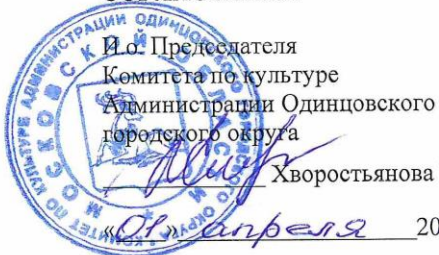 И.о. Председателя
Комитета по культуре
Администрации Одинцовского
городского округа
Хворостьянова
«01» апреля 20